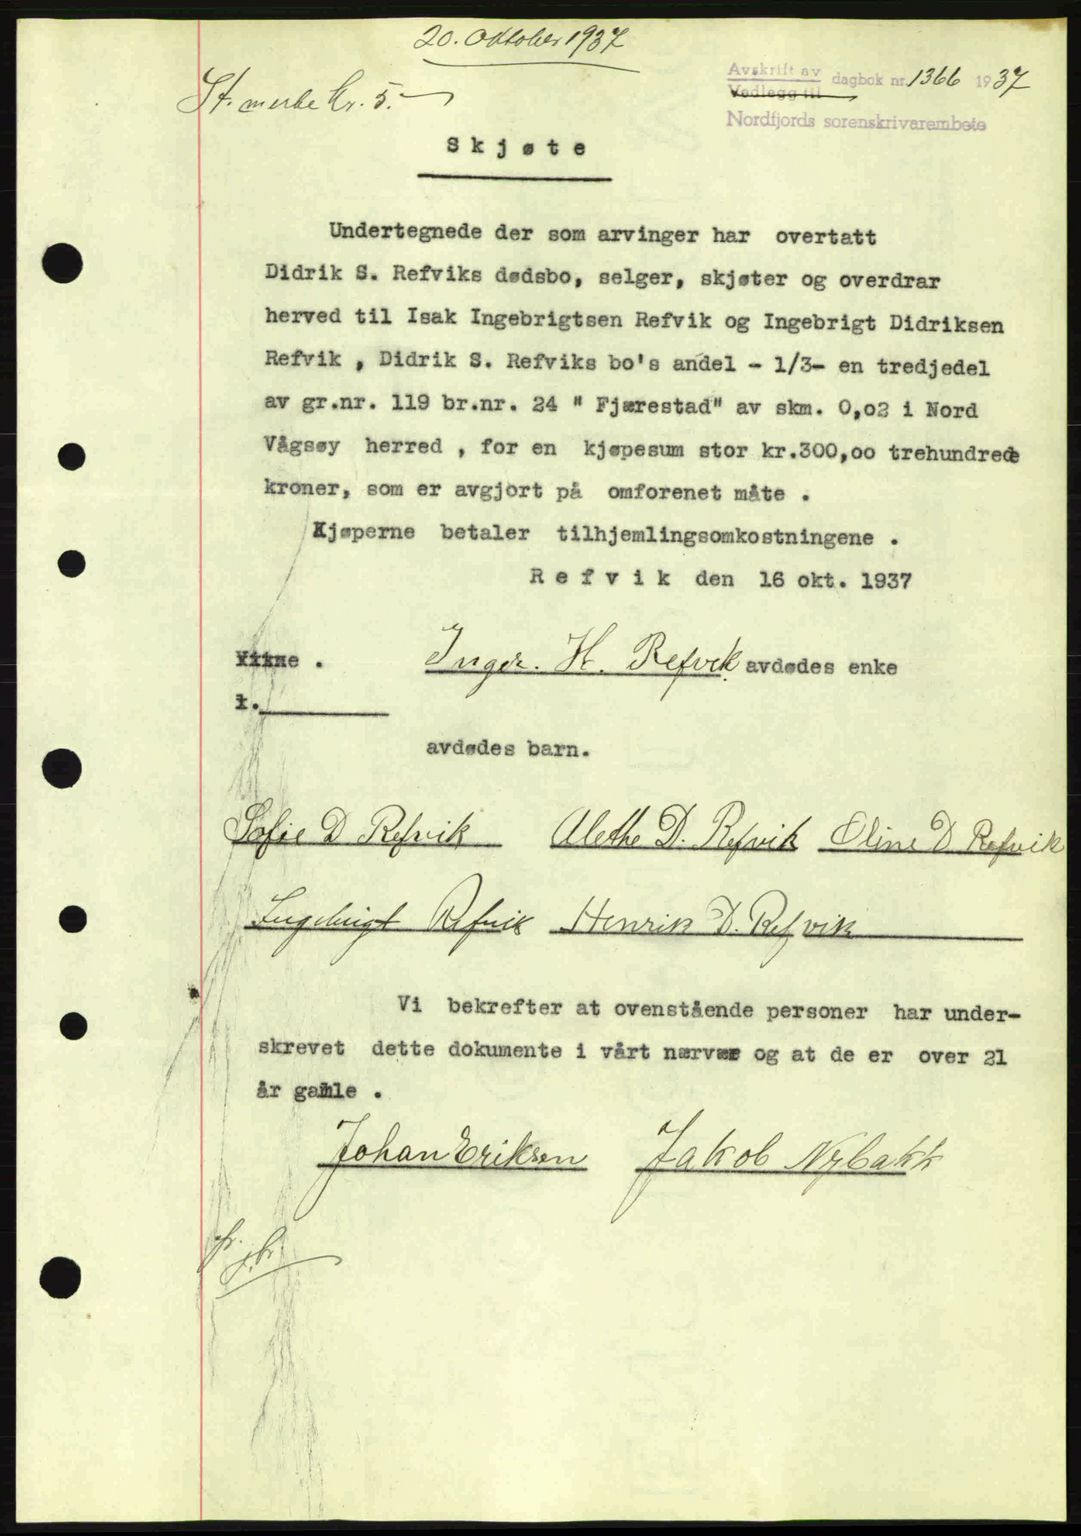 20. Oktober 1937
St. merke kr. 5.-
Avskrift av
Vedlegg til
dagbok nr. 1366 1937
Nordfjords sorenskrivarembete
Skjøte
Undertegnede der som arvinger har overtatt
Didrik S. Refviks dødsbo, selger, skjøter og overdrar
herved til Isak Ingebrigtsen Refvik og Ingebrigt Didriksen
Refvik , Didrik S. Refviks bo's andel - 1/3- en tredjedel
av gr.nr. 119 br.nr. 24 " Fjærestad" av skm. 0,02 i Nord
Vågsøy herred , for en kjøpesum stor kr.300,oo trehundrede
kroner, som er avgjort på omforenet måte .
Kjøperne betaler tilhjemlingsomkostningene .
Refvik den 16 okt. 1937
Inger. H. Refvik avdødes enke
1.
avdødes barn.
Sofie D Refvik Alethe D. Refvik Oline D Refvik
Ingebrigt Refvik Henrik D. Refvik
Vi bekrefter at ovenstående personer har under-
skrevet dette dokumente i vårt nærvær og at de er over 21
år gamle .
Johan Eriksen Jakob Nybakk